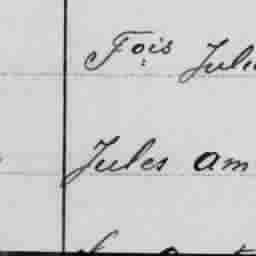 Fois Jule
Jules am